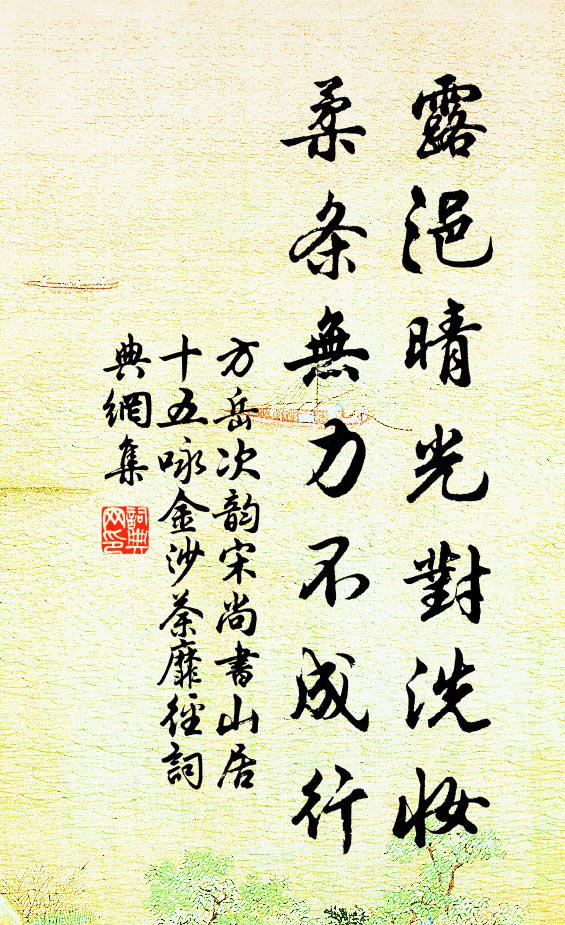 露浥晴光對洗妝
柔条無力不成行
方岳次韵宋尚書山居
十五咏金沙荼靡徑詞
典網集
詞典網印